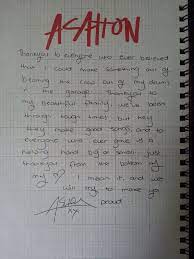 ASHTON
thankyou to everyone who ever believed
that I could make something out of
my drums
in the garage. thankyou to
my beautiful family, we've been
through tough times but they
they made good songs, and to
everyone who ever gave us a
helping hand big or small. just
thankyou from the bottom of
my ♡ I mean it, and we
will try to make you
proud
ASHTON
xx